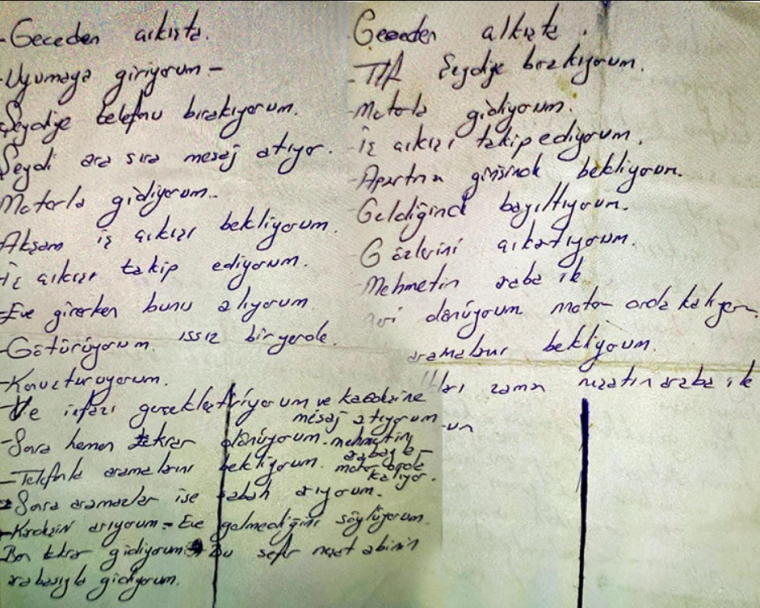 -Geceden çıkışta.
-Uyumaya giriyorum-
Şeydiye telefonu bırakıyorum.
Şeydi ara sıra mesaj atıyor.
Motorla gidiyorum.
Akşam iş çıkışı bekliyorum.
iş çıkışı takip ediyorum.
-Eve girerken bunu alıyorum
-Götürüyorum. ıssız bir yerde.
-Konuşturuyorum.
-Ve infazı gerçekleştiriyorum ve kardeşine
mesaj atıyorum
-Sora hemen tekrar dönüyorum. mehmetin
arabayla-
-Telefonla aramalarını bekliyorum. motor orada
kalıyor.
Sora aramazlar ise sabah arıyorum.
-Kardeşin arıyorum-Eve gelmediğini söylüyorum.
Ben tekrar gidiyorum Bu sefer nezat abinin
arabasıyla gidiyorum.
Geceden çıkışta.
-T/A Şeydiye bırakıyorum.
-Motorla gidiyorum.
-İş çıkışı takip ediyorum.
-Apartmn girişinde bekliyorum.
Geldiğinde bayıltıyorum.
Gözlerini çıkartıyorum.
-Mehmetin araba ile
geri dönüyorum motor orda kalıyor.
aramaları bekliyorum.
zaman nezatın araba ile